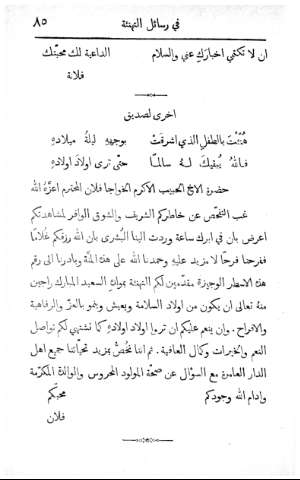 في رسائل التهنئة ٨٥
ان لا تكتمي اخبارك عني والسلام الداعية لك محبتك
فلانة
اخرى لصديق
هُنِّئتَ بالطفلِ الذي اشرقتْ بوجههِ ليلةُ ميلادهِ
فاللهُ يبقيكَ لهُ سالمًا حتى ترى اولادَ اولادهِ
حضرة الاخ الحبيب الاكرم الخواجا فلان المحترم اعزَّهُ الله
غب التفحُّص عن خاطركم الشريف والشوق الوافر لمشاهدتكم
اعرض بان في ابرك ساعة وردت الينا البُشرى بان الله رزقكم غُلامًا
ففرحنا فرحًا لا مزيد عليهِ وحمدنا الله على هذه المنَّة وبادرنا الى رقم
هذه الاسطر الوجيزة مقدّمين لكم التهنئة بمولدهِ السعيد المبارك راجين
منهُ تعالى ان يكون من اولاد السلامة ويعيش وينمو بالعزّ والرفاهية
والافراح. وإن ينعم عليكم ان تروا اولاد اولادهِ كما نشتهي لكم تواصل
النعم والخيرات وكمال العافية. ثم اننا نخصُّ بمزيد تحيَّاتنا جميع اهل
الدار العامرة مع السؤال عن صحَّة المولود المحروس والوالدة المكرَّمة
وادام الله وجودكم محبكم
فلان